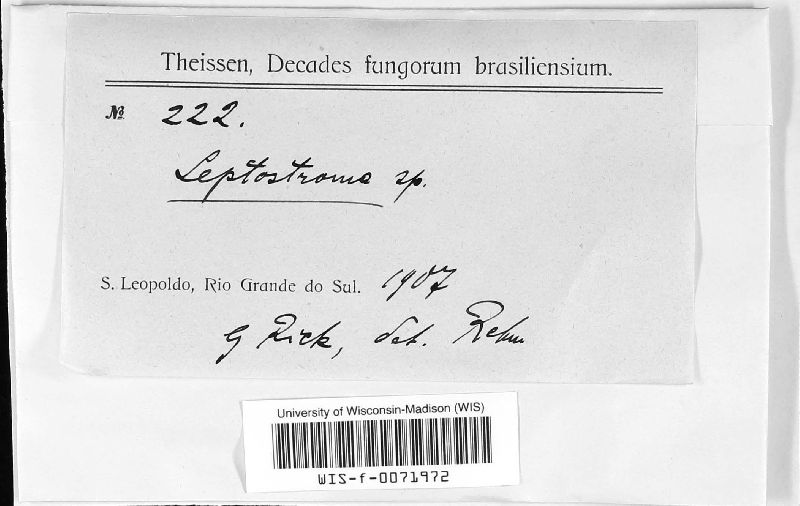 Theissen, Decades fungorum brasiliensium.
№ 222.
Leptostroma sp.
S. Leopoldo, Rio Grande do Sul. 1907
G Rick, det. Rehm
University of Wisconsin-Madison (WIS)
WIS-f-0071972